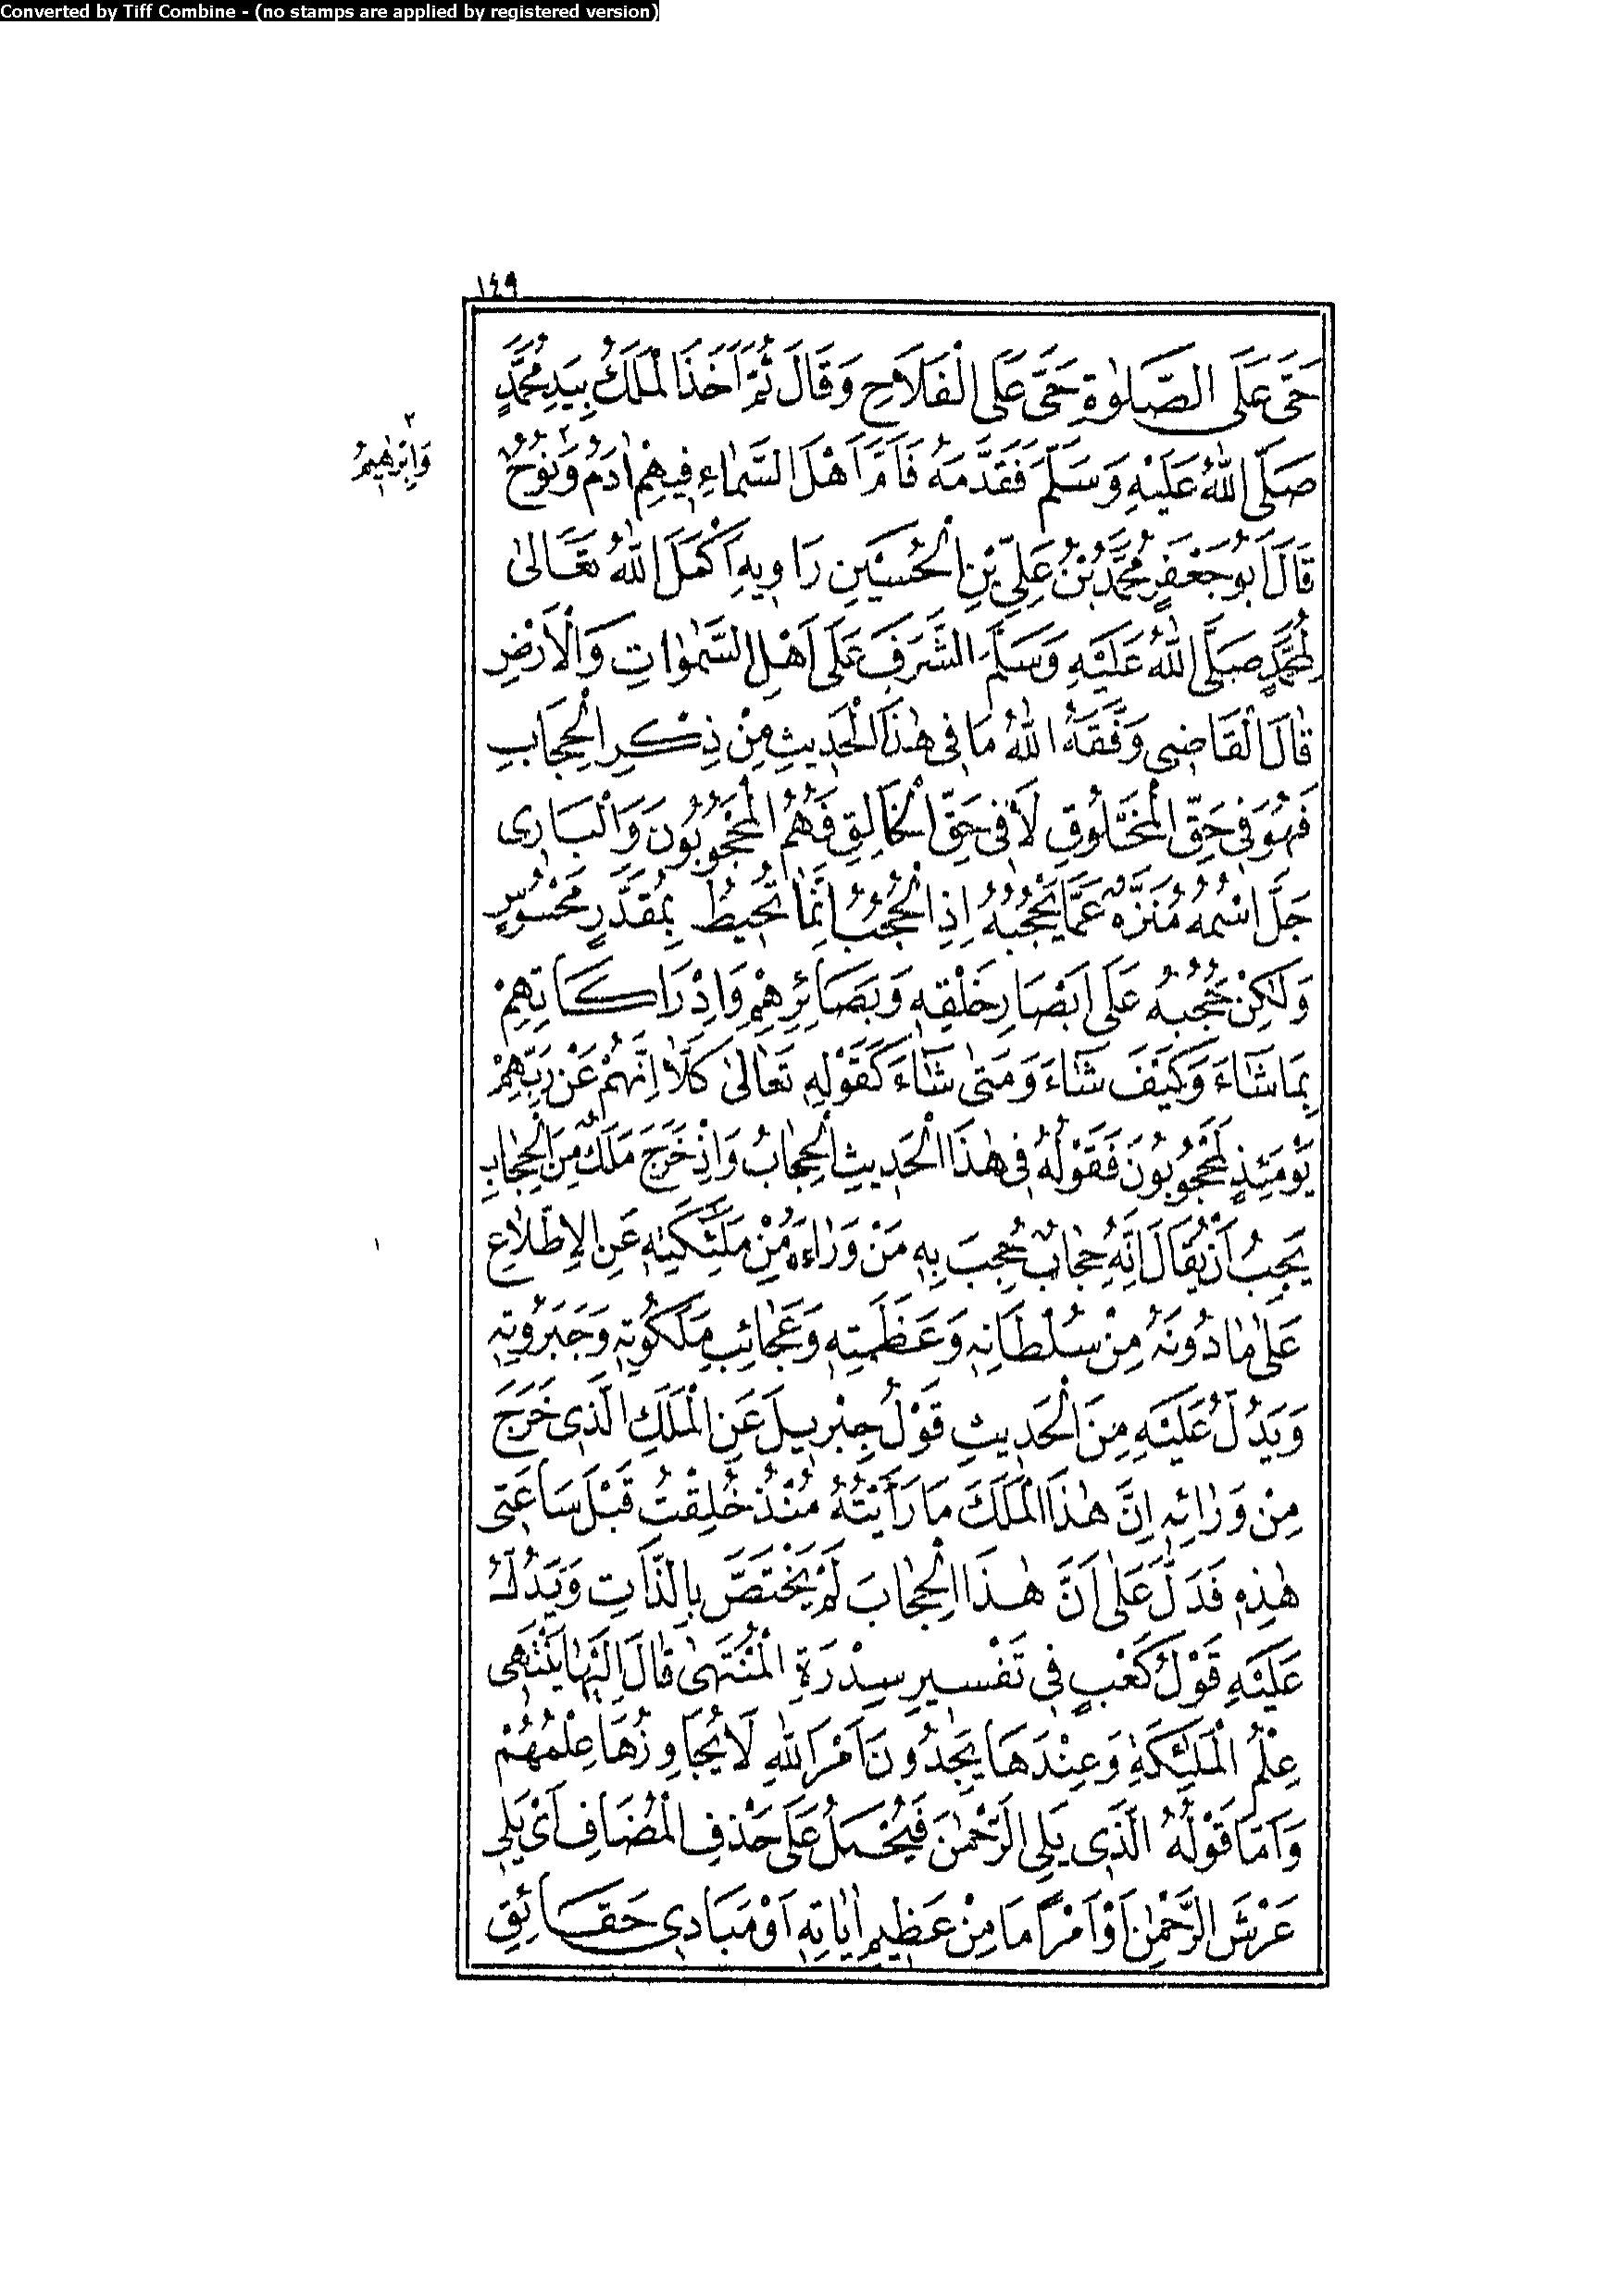 Converted by Tiff Combine - (no stamps are applied by registered version)
١٤٩
حَىَّ عَلَى الصَّلٰوةِ حَىَّ عَلَى الْفَلَاحِ وَقَالَ ثُمَّ اَخَذَ الْمَلَكُ بِيَدِ مُحَمَّدٍ
صَلَّى اللّٰهُ عَلَيْهِ وَسَلَّمَ فَقَدَّمَهُ فَاَمَّ اَهْلَ السَّمَاءِ فِيهِمْ اٰدَمُ وَنُوحٌ ٢
٢
وَاِبْرٰهِيمُ
قَالَ اَبُو جَعْفَرٍ مُحَمَّدُ بْنُ عَلِيِّ بْنِ الْحُسَيْنِ رَاوِيهِ اَكْمَلَ اللّٰهُ تَعَالٰى
لِمُحَمَّدٍ صَلَّى اللّٰهُ عَلَيْهِ وَسَلَّمَ الشَّرَفَ عَلَى اَهْلِ السَّمٰوَاتِ وَالْاَرْضِ
قَالَ الْقَاضِى وَفَّقَهُ اللّٰهُ مَا فِى هٰذَا الْحَدِيثِ مِنْ ذِكْرِ الْحِجَابِ
فَهُوَ فِى حَقِّ الْمَخْلُوقِ لَا فِى حَقِّ الْخَالِقِ فَهُمُ الْمَحْجُوبُونَ وَالْبَارِى
جَلَّ اسْمُهُ مُنَزَّهٌ عَمَّا يَحْجُبُهُ اِذِ الْحُجُبُ اِنَّمَا تُحِيطُ بِمُقَدَّرٍ مَحْسُوسٍ
وَلٰكِنْ حُجُبُهُ عَلَى اَبْصَارِ خَلْقِهِ وَبَصَائِرِهِمْ وَاِدْرَاكَاتِهِمْ
بِمَا شَاءَ وَكَيْفَ شَاءَ وَمَتٰى شَاءَ كَقَوْلِهِ تَعَالٰى كَلَّا اِنَّهُمْ عَنْ رَبِّهِمْ
يَوْمَئِذٍ لَمَحْجُوبُونَ فَقَوْلُهُ فِى هٰذَا الْحَدِيثِ الْحِجَابُ وَاِذْ خَرَجَ مَلَكٌ مِنَ الْحِجَابِ
يَجِبُ اَنْ يُقَالَ اِنَّهُ حِجَابٌ حُجِبَ بِهِ مَنْ وَرَاءَهُ مِنْ مَلٰئِكَتِهِ عَنِ الْاِطِّلَاعِ
١
عَلَى مَا دُونَهُ مِنْ سُلْطَانِهِ وَعَظَمَتِهِ وَعَجَائِبِ مَلَكُوتِهِ وَجَبَرُوتِهِ
وَيَدُلُّ عَلَيْهِ مِنَ الْحَدِيثِ قَوْلُ جِبْرِيلَ عَنِ الْمَلَكِ الَّذِى خَرَجَ
مِنْ وَرَائِهِ اِنَّ هٰذَا الْمَلَكَ مَا رَاَيْتُهُ مُنْذُ خُلِقْتُ قَبْلَ سَاعَتِى
هٰذِهِ فَدَلَّ عَلٰى اَنَّ هٰذَا الْحِجَابَ لَمْ يَخْتَصَّ بِالذَّاتِ وَيَدُلُّ
عَلَيْهِ قَوْلُ كَعْبٍ فِى تَفْسِيرِ سِدْرَةِ الْمُنْتَهٰى قَالَ اِلَيْهَا يَنْتَهِى
عِلْمُ الْمَلٰئِكَةِ وَعِنْدَهَا يَجِدُونَ اَمْرَ اللّٰهِ لَا يُجَاوِزُهَا عِلْمُهُمْ
وَاَمَّا قَوْلُهُ الَّذِى يَلِى الرَّحْمٰنَ فَيُحْمَلُ عَلَى حَذْفِ الْمُضَافِ اَىْ يَلِى
عَرْشَ الرَّحْمٰنِ اَوْ اَمْرًا مَا مِنْ عَظِيمِ اٰيَاتِهِ اَوْ مَبَادِى حَقَائِقِ